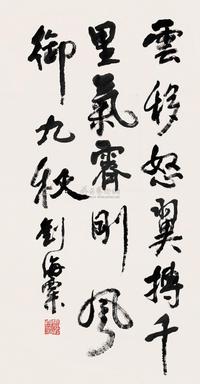 雲移怒翼搏千
里氣霽剛風
御九秋劉海粟